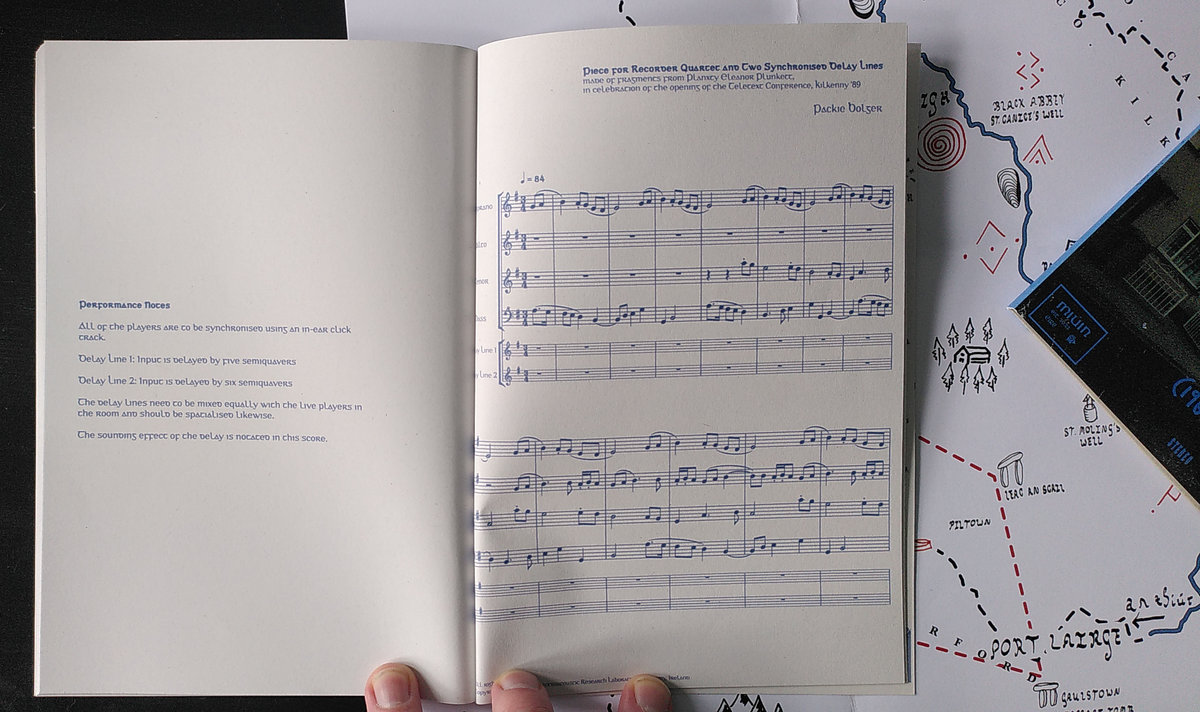 Performance Notes
All of the players are to be synchronised using an in-ear click
crack.
Delay Line 1: Input is delayed by five semiquavers
Delay Line 2: Input is delayed by six semiquavers
The delay lines need to be mixed equally with the live players in
the room and should be spacialised likewise.
The sounding effect of the delay is notated in this score.
Piece for Recorder Quartet and Two Synchronised Delay Lines
made of fragments from Planxty Eleanor Plunkett,
in celebration of the opening of the Teletext Conference, Kilkenny '89
Packie Bolger
♩ = 84
Line 1
Line 2
Ireland
BLACK ABBEY
ST. CANICE'S WELL
KILK
ST. MOLING'S
WELL
LEAC AN SCAIL
PILTOWN
PORT LAIRGE
GAULSTOWN
MIÚIN
STEREO